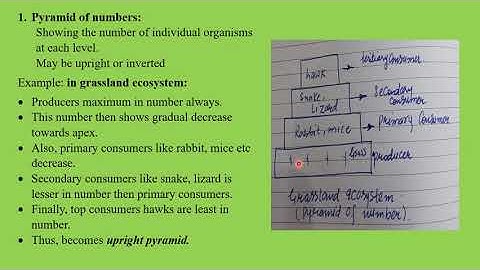 1. Pyramid of numbers:
Showing the number of individual organisms
at each level.
May be upright or inverted
Example: in grassland ecosystem:
• Producers maximum in number always.
• This number then shows gradual decrease
towards apex.
• Also, primary consumers like rabbit, mice etc
decrease.
• Secondary consumers like snake, lizard is
lesser in number then primary consumers.
• Finally, top consumers hawks are least in
number.
• Thus, becomes upright pyramid.
hawk → tertiary consumer
Snake, → Secondary
lizard consumer
Rabbit, mice → primary consumer
producer
Grassland ecosystem
(pyramid of number).